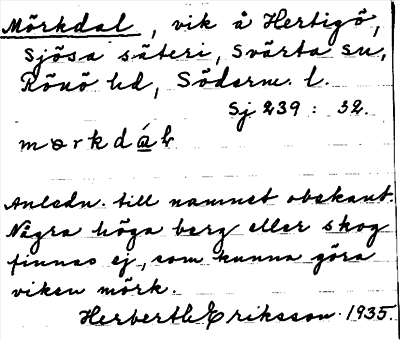 Mörkdal, vik å Hertigö,
Sjösa säteri, Svärta sn,
Rönö hd, Söderm. l.
Sj 239 : 32.
mørkdáɫ
Anledn. till namnet obekant.
Några höga berg eller skog
finnas ej, som kunna göra
viken mörk.
Herberth Eriksson 1935.